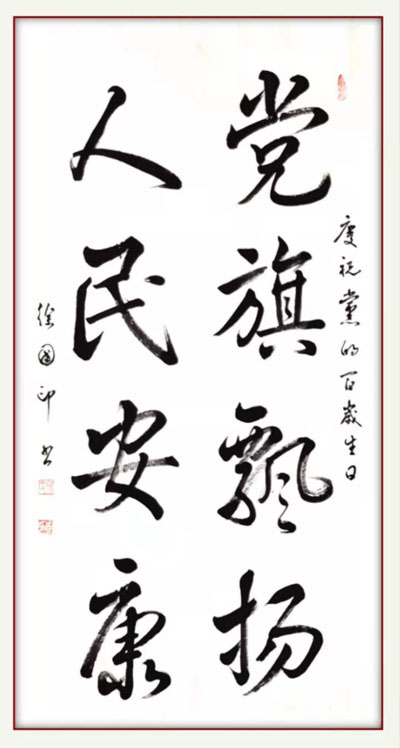 庆祝党的百岁生日
党旗飘扬
人民安康
徐国印书